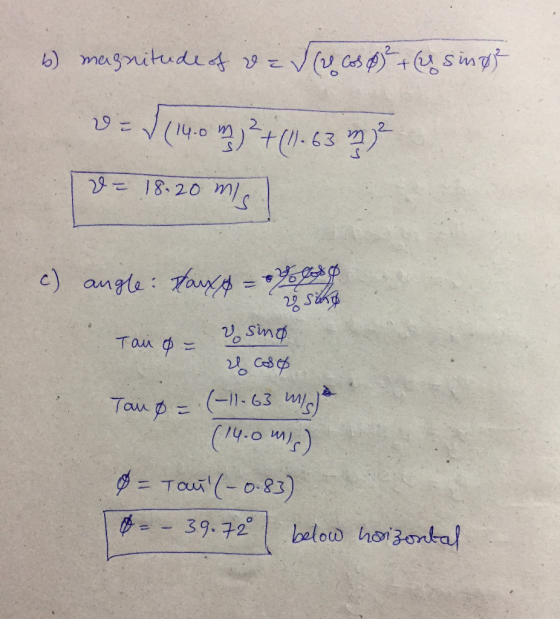 b) magnitude of v = √(v₀ cos φ)² + (v₀ sin φ)²
v = √(14.0 m/s)² + (11.63 m/s)²
v = 18.20 m/s
c) angle: Tan φ = v₀ cos φ / v₀ sin φ
Tan φ = v₀ sin φ / v₀ cos φ
Tan φ = (-11.63 m/s) / (14.0 m/s)
φ = Tan⁻¹ (-0.83)
φ = - 39.72° below horizontal